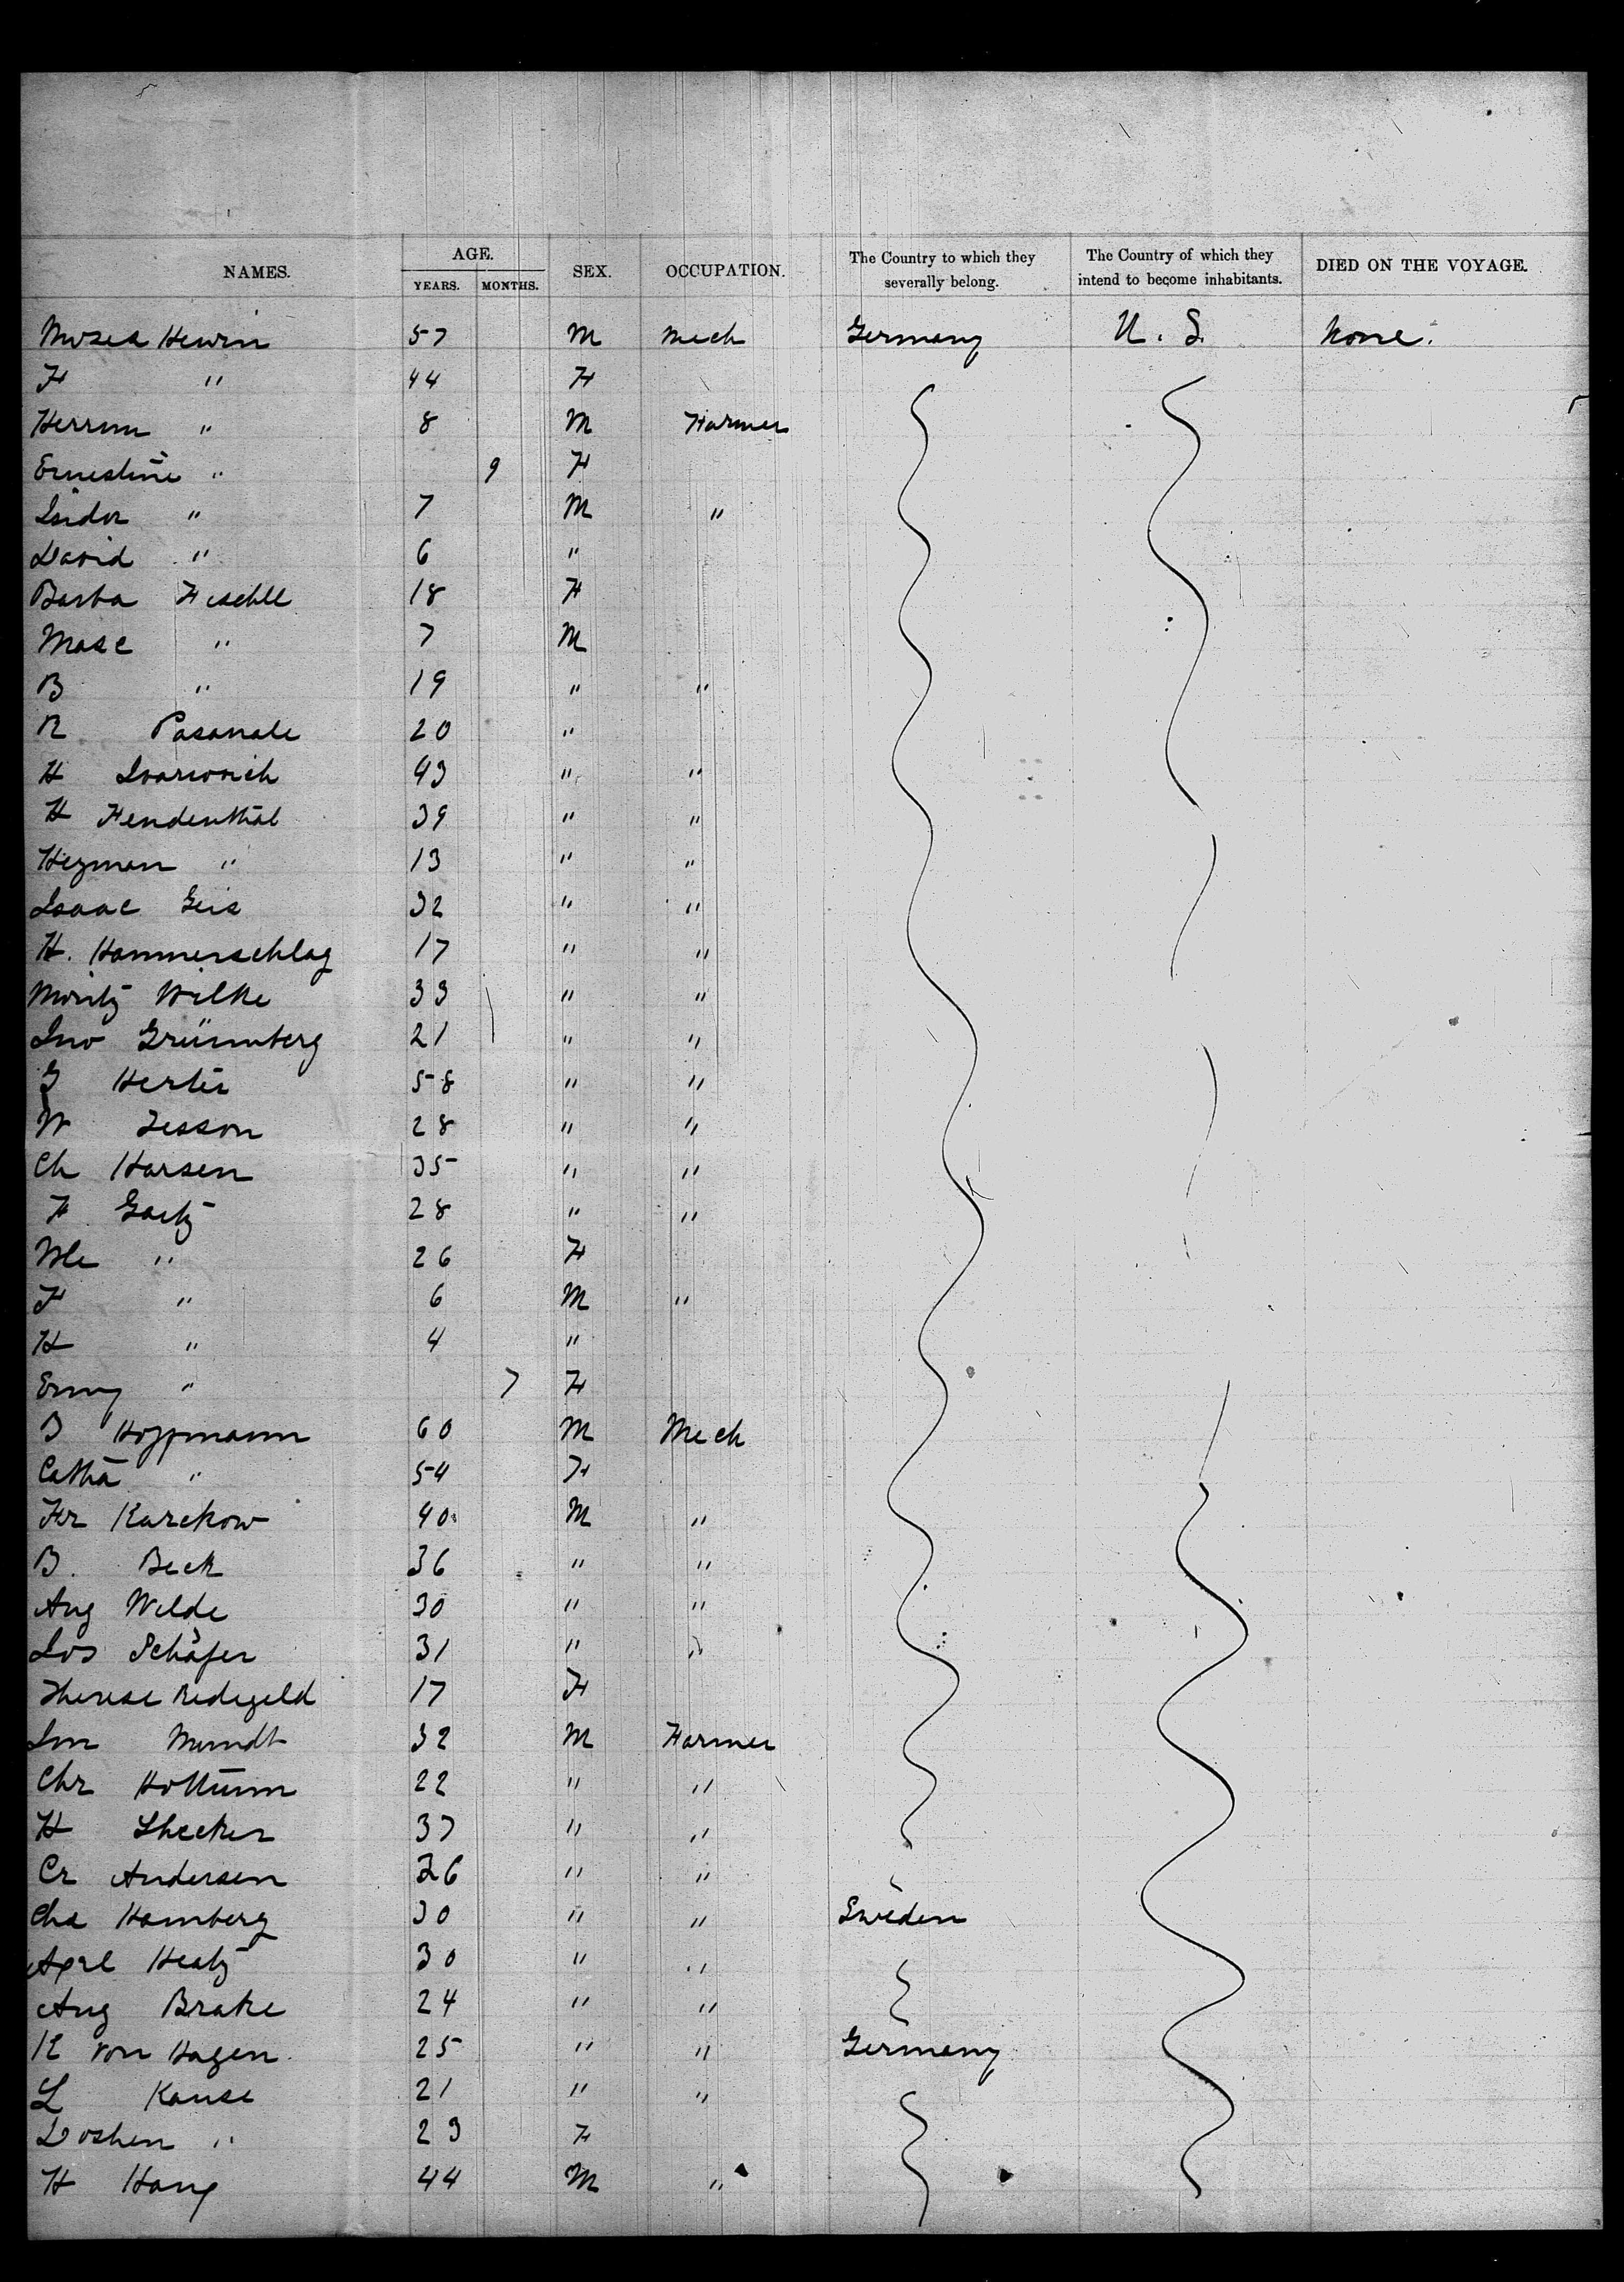 NAMES. AGE. YEARS. MONTHS. SEX. OCCUPATION. The Country to which they severally belong. The Country of which they intend to become inhabitants. DIED ON THE VOYAGE.
Moses Hewin 57 M Mech Germany U. S. None.
F " 44 F
Herrm " 8 M Farmer
Ernestine " 9 F
Isidor " 7 M "
David " 6 "
Barba Fischll 18 F
Mose " 7 M
B " 19 " "
R Pasanale 20 "
H 43 " "
H Fendenthal 39 " "
Heyman " 13 " "
Isaac Geis 32 " "
H. Hammerschlag 17 " "
Moritz Wilke 33 " "
Ino Grünnberg 21 " "
G Herter 58 " "
W Zesson 28 " "
Ch Harsen 35 " "
F Gartz 28 " "
Wle " 26 F
F " 6 M "
H " 4 "
Emy " 7 F
B Hoffmann 60 M Mech
Catha " 54 F
Fr Karckow 40 M "
B. Beck 36 " "
Aug Wilde 30 " "
Jos Schäfer 31 " "
Therese Redegeld 17 F
Jon Mundt 32 M Farmer
Chr Hollumm 22 " "
H Shecker 37 " "
Cr Andersen 26 " "
Cha Hamberg 30 " " Sweden
Axel Heatz 30 " "
Aug Brake 24 " "
K von Hagen 25 " " Germany
L Kause 21 " "
Doshen " 23 F
H Haug 44 M "